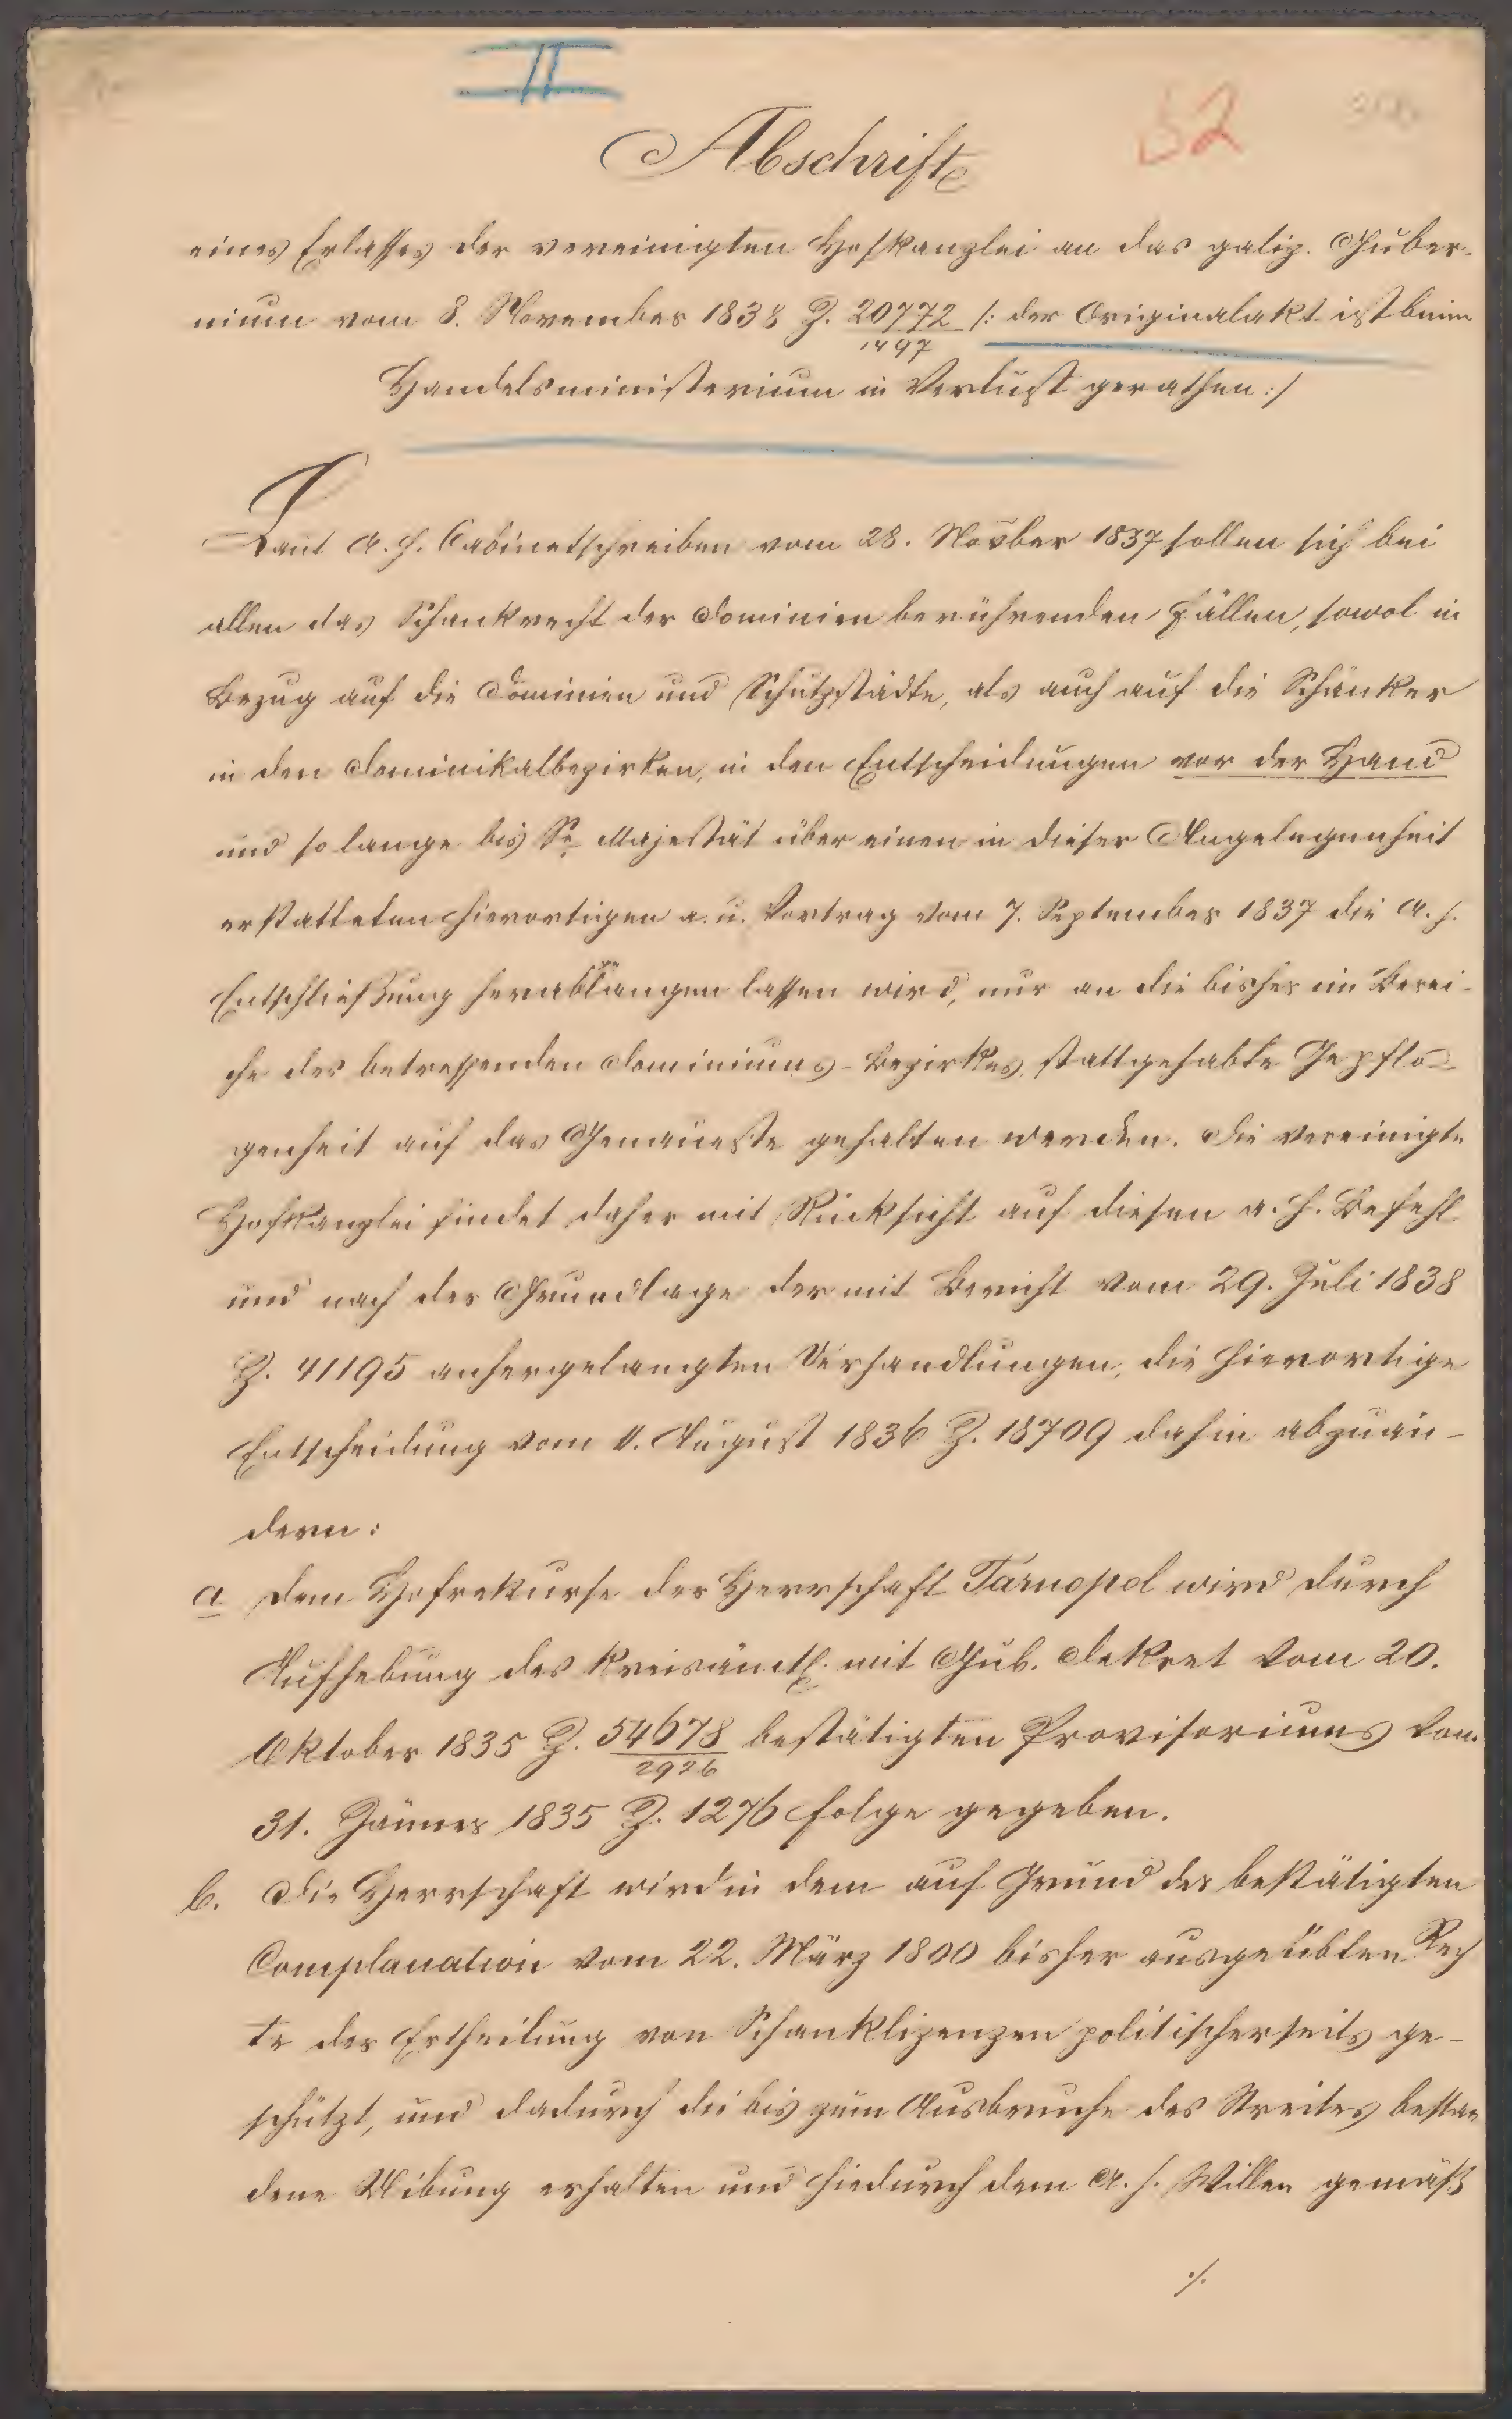 II
52
Abschrift
eines Erlasses der vereinigten Hofkanzlei an das galiz. Guber-
nium vom 8. November 1838 Z. 20772/1497 /: der Originalakt ist beim
Handelsministerium in Verlust gerathen :/
Laut A. h. Cabinetschreiben vom 28. Novber 1837 sollen sich bei
allen das Schankrecht der Dominien berührenden Fällen, sowol in
Bezug auf die Dominien und Schutzstädte, als auch auf die Schänker
in den Dominikalbezirken, in den Entscheidungen vor der Hand
und so lange bis Se Majestät über einen in dieser Angelegenheit
erstatteten hierortigen a. u. Vortrag vom 7. September 1837 die A. h.
Entschließung herablangen lassen wird, nur an die bisher im Berei-
che des betreffenden Dominiums-Bezirkes, stattgehabte Gepflo-
genheit auf das Genaueste gehalten werden. Die vereinigte
Hofkanzlei findet daher mit Rücksicht auf diesen a. h. Befehl
und nach der Grundlage der mit Bericht vom 29. Juli 1838
Z. 41195 anhergelangten Verhandlungen, die hierortige
Entscheidung vom 11. August 1836 Z. 18709 dahin abzuän-
dern:
a Dem Hofrekurse der Herrschaft Tarnopol wird durch
Aufhebung des kreisämtl. mit Gub. Dekret vom 20.
Oktober 1835 Z. 54678/2926 bestätigten Provisoriums vom
31. Jänner 1835 Z. 1276 Folge gegeben.
b. Die Herrschaft wird in dem auf Grund der bestätigten
Complanation vom 22. März 1800 bisher ausgeübten Rech
te der Ertheilung von Schanklizenzen politischerseits ge-
schützt, und dadurch die bis zum Ausbruche des Streites bestan
dene Uibung erhalten und hiedurch dem A. h. Willen gemäß
./.